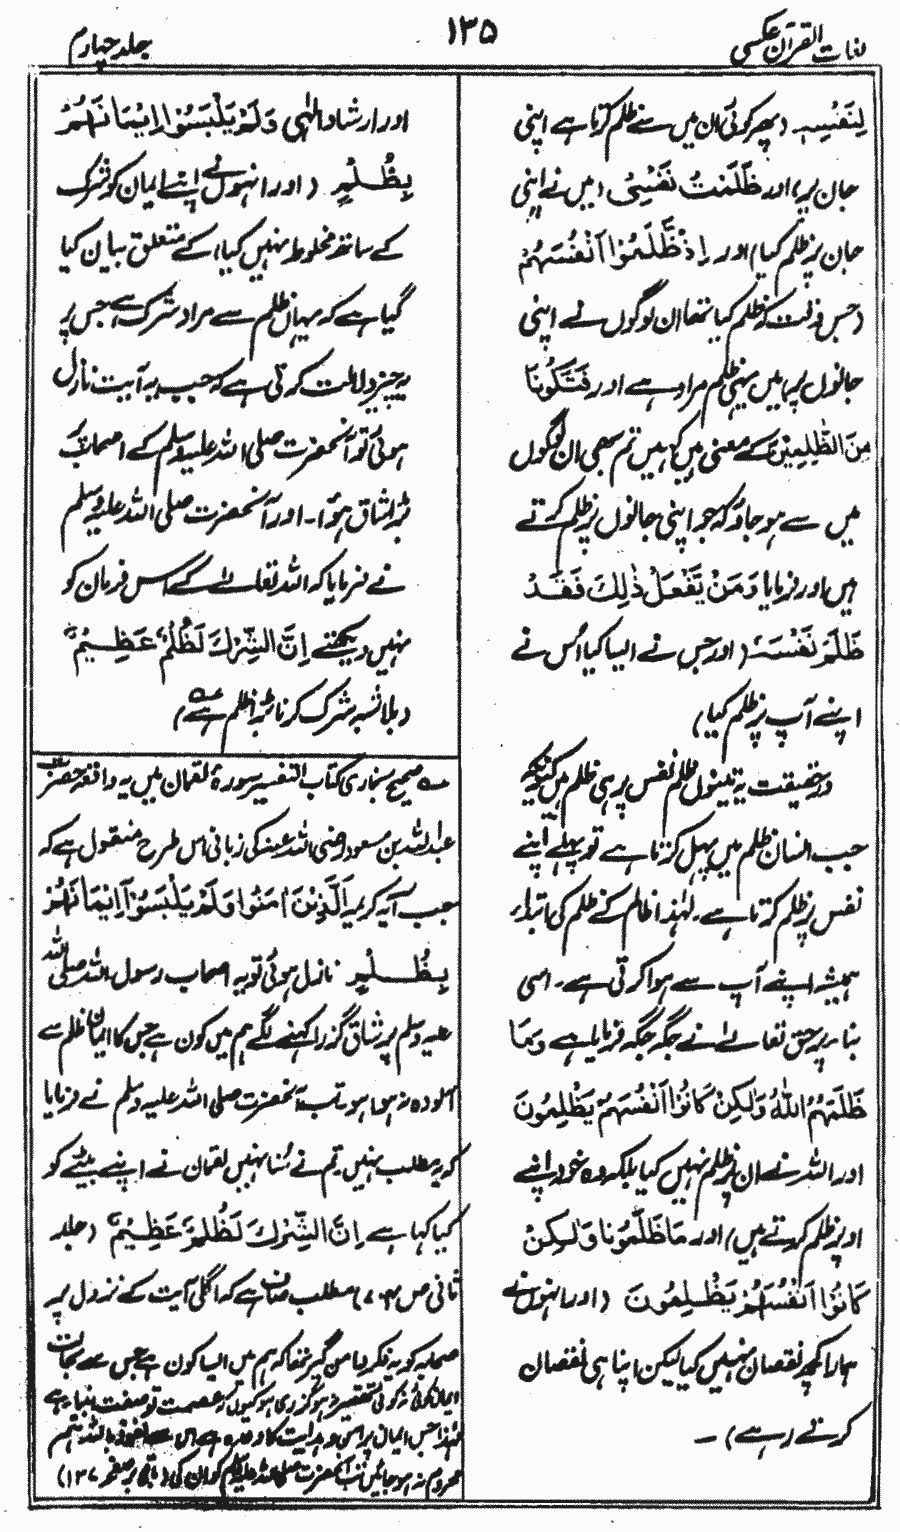 لغات القرآن عکسی
۱۳۵
جلد چہارم
لِنَفْسِہٖ (پھر کوئی ان میں سے ظلم کرتا ہے اپنی
جان پر) اور ظَلَمْتُ نَفْسِیْ (میں نے اپنی
جان پر ظلم کیا) اور اِذْ ظَّلَمُوْا اَنْفُسَھُمْ
(جس وقت کہ ظلم کیا تھا ان لوگوں نے اپنی
جانوں پر) میں یہی ظلم مراد ہے اور فَتَکُوْنَا
مِنَ الظّٰلِمِیْنَ کے معنی ہیں کہ ہیں تم بھی ان لوگوں
میں سے ہو جاؤ کہ جو اپنی جانوں پر ظلم کرتے
ہیں اور فرمایا وَمَنْ یَّفْعَلْ ذٰلِکَ فَقَدْ
ظَلَمَ نَفْسَہٗ (اور جس نے ایسا کیا اُس نے
اپنے آپ پر ظلم کیا)
درحقیقت یہ تینوں ظلم نفس پر ہی ظلم ہیں کیونکہ
جب انسان ظلم میں پہل کرتا ہے تو پہلے اپنے
نفس پر ظلم کرتا ہے۔ لہٰذا ظالم کے ظلم کی ابتداء
ہمیشہ اپنے آپ سے ہوا کرتی ہے۔ اسی
بناء پر حق تعالےٰ نے جگہ جگہ فرمایا ہے وَمَا
ظَلَمَہُمُ اللّٰہُ وَلٰکِنْ کَانُوْا اَنْفُسَہُمْ یَظْلِمُوْنَ
اور اللہ نے ان پر ظلم نہیں کیا بلکہ وہ خود اپنے
اوپر ظلم کرتے ہیں) اور مَا ظَلَمُوْنَا وَلٰکِنْ
کَانُوْا اَنْفُسَھُمْ یَظْلِمُوْنَ (اور انہوں نے
ہمارا کچھ نقصان نہیں کیا لیکن اپنا ہی نقصان
کرتے رہے)۔
اور ارشاد الٰہی وَلَمْ یَلْبَسُوْا اِیْمَانَھُمْ
بِظُلْمٍ (اور انہوں نے اپنے ایمان کو شرک
کے ساتھ مخلوط نہیں کیا) کے متعلق بیان کیا
گیا ہے کہ یہاں ظلم سے مراد شرک ہے جس پر
یہ چیز دلالت کرتی ہے کہ جب یہ آیت نازل
ہوئی تو آنحضرت صلی اللہ علیہ وسلم کے اصحاب پر
شاق ہوا۔ اور آنحضرت صلی اللہ علیہ وسلم
نے فرمایا کہ اللہ تعالےٰ کے اس فرمان کو
نہیں دیکھتے اِنَّ الشِّرْکَ لَظُلْمٌ عَظِیْمٌ
(بلاشبہ شرک کرنا بڑا ظلم ہے)
صحیح بخاری کتاب التفسیر سورۂ لقمان میں یہ واقعہ حضرت
عبداللہ بن مسعود رضی اللہ عنہ کی زبانی اس طرح منقول ہے کہ
جب آیہ کریمہ اَلَّذِیْنَ اٰمَنُوْا وَلَمْ یَلْبَسُوْا اِیْمَانَھُمْ
بِظُلْمٍ نازل ہوئی تو یہ اصحاب رسول اللہ صلی اللہ
علیہ وسلم پر شاق گزرا کہنے لگے ہم میں کون ہے جس کا ایمان ظلم سے
آلودہ نہ ہوا ہو۔ تب آنحضرت صلی اللہ علیہ وسلم نے فرمایا
کہ یہ مطلب نہیں۔ تم نے سُنا نہیں لقمان نے اپنے بیٹے کو
کیا کہا ہے اِنَّ الشِّرْکَ لَظُلْمٌ عَظِیْمٌ (جلد
ثانی ص ۷۰۴) مطلب صاف ہے کہ اگلی آیت کے نزول پر
صحابہ کو یہ فکر دامن گیر تھا کہ ہم میں ایسا کون ہے جس سے بحالت
ایمان کوئی نہ کوئی تقصیر نہ ہو گزری ہو کیونکہ عصمت تو صفت انبیاء ہے
لہٰذا جس ایمان پر امن و ہدایت کا وعدہ ہے اس سے نعوذ باللہ ہم
محروم نہ ہو جائیں تب آنحضرت صلی اللہ علیہ وسلم کو ان کی (باقی بر صفحہ ۱۳۷)